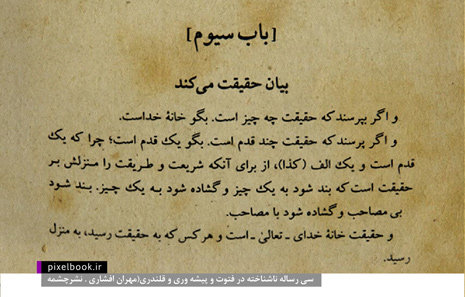 [باب سیوم]
بیان حقیقت می‌کند
و اگر بپرسند که حقیقت چه چیز است. بگو خانهٔ خداست.
و اگر پرسند که حقیقت چند قدم است. بگو یک قدم است؛ چرا که یک
قدم است و یک الف (کذا)، از برای آنکه شریعت و طریقت را منزلش بر
حقیقت است که بند شود به یک چیز و گشاده شود به یک چیز. بند شود
بی مصاحب و گشاده شود با مصاحب.
و حقیقت خانهٔ خدای ـ تعالیٰ ـ است و هر کس که به حقیقت رسید، به منزل
رسید.
pixelbook.ir
سی رساله ناشناخته در فتوت و پیشه وری و قلندری(مهران افشاری . نشرچشمه